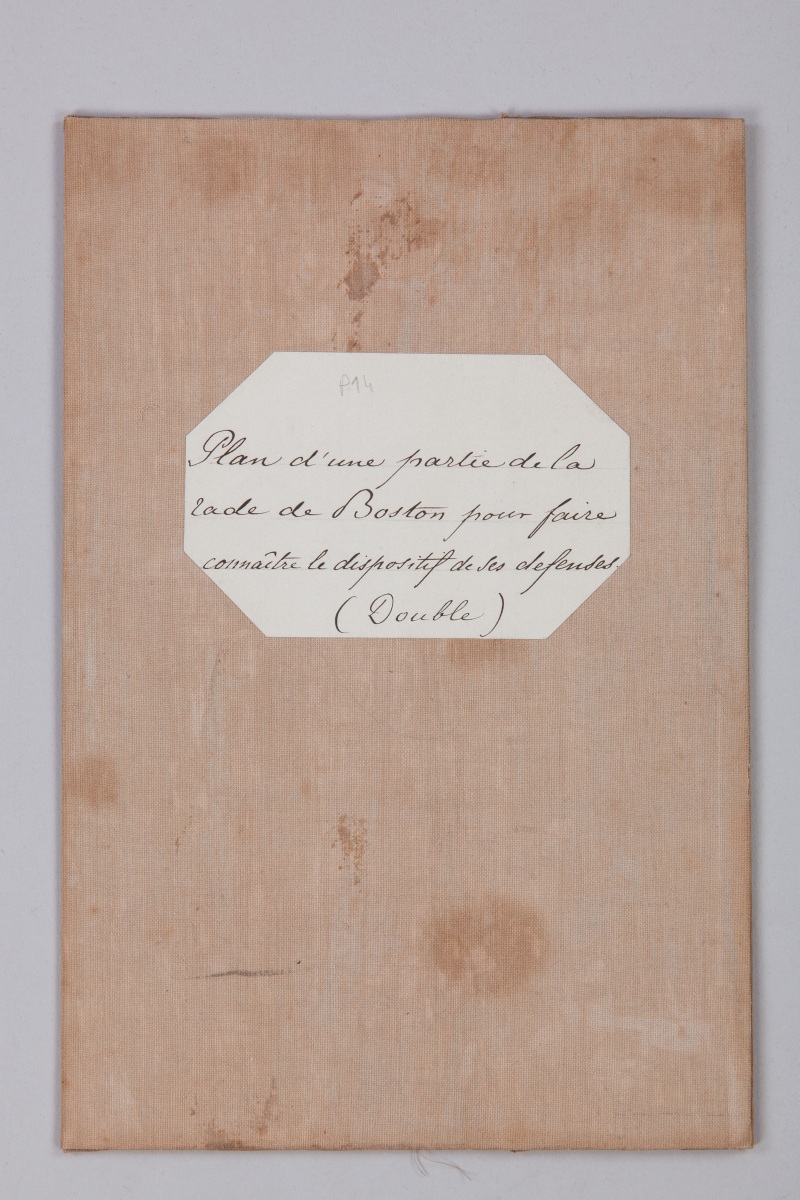 P14
Plan d'une partie de la
rade de Boston pour faire
connaître le dispositif de ses defenses.
(Double)